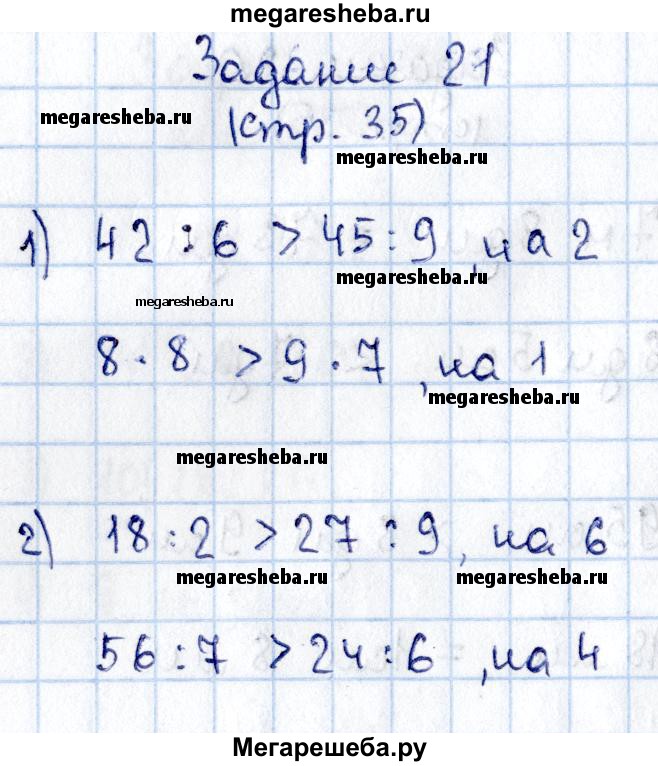 megaresheba.ru
Задание 21
megaresheba.ru
(стр. 35)
megaresheba.ru
1) 42 : 6 > 45 : 9, на 2
megaresheba.ru
megaresheba.ru
8 · 8 > 9 · 7, на 1
megaresheba.ru
megaresheba.ru
2) 18 : 2 > 27 : 9, на 6
megaresheba.ru megaresheba.ru
56 : 7 > 24 : 6, на 4
Мегарешеба.ру